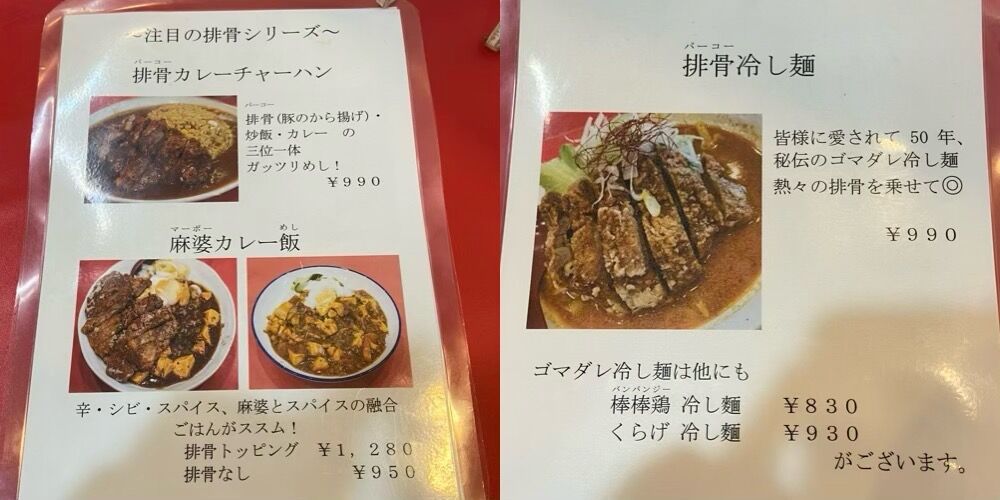 ～注目の排骨シリーズ～
パーコー
排骨カレーチャーハン
パーコー
排骨(豚のから揚げ)・
炒飯・カレー　の
三位一体
ガッツリめし！
￥９９０
マーボー　めし
麻婆カレー飯
辛・シビ・スパイス、麻婆とスパイスの融合
ごはんがススム！
排骨トッピング　￥１，２８０
排骨なし　￥９５０
パーコー
排骨冷し麺
皆様に愛されて 50 年、
秘伝のゴマダレ冷し麺
熱々の排骨を乗せて◎
￥９９０
ゴマダレ冷し麺は他にも
バンバンジー
棒棒鶏 冷し麺　￥８３０
くらげ 冷し麺　￥９３０
がございます。